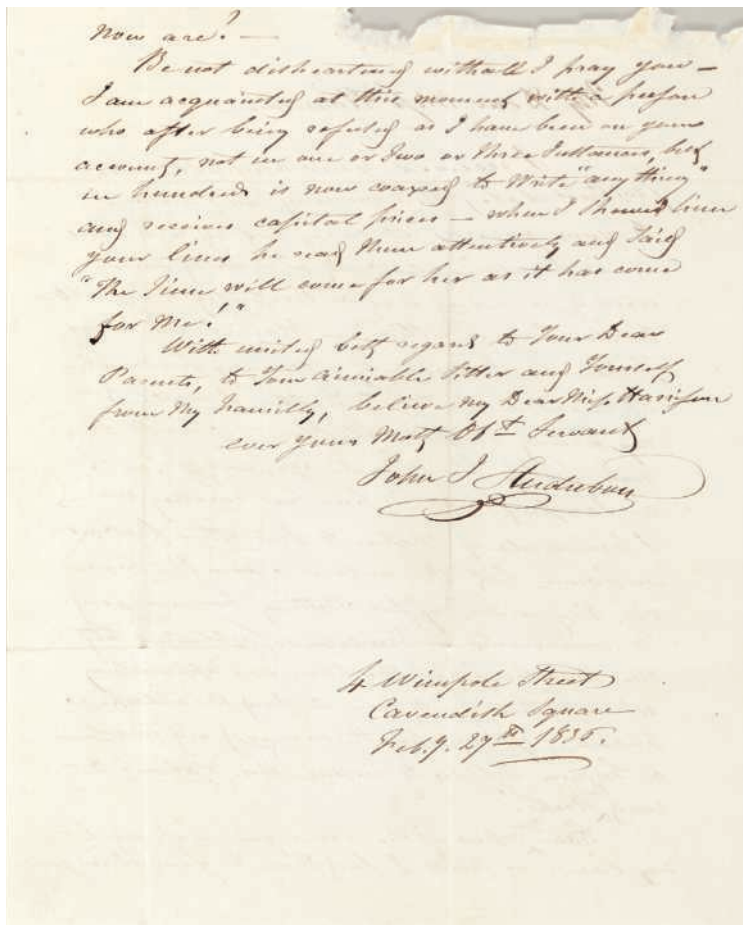 now are! —
Be not disheartened withall I pray you —
I am acquainted at this moment with a person
who after being refused as I have been on your
account, not in one or Two or three Instances, but
in hundreds is now coaxed to Write "any thing"
and receives capital prices — when I shewed him
your lines he read them attentively and Said
"The Time will come for her as it has come
for Me!"
With united best regards to Your Dear
Parents, to Your amiable Sister and Yourself
from My Familly, believe my Dear Miss Harrison
ever yours Most Obt Servant
John J Audubon
4 Wimpole Street
Cavendish Square
Feby. 27th